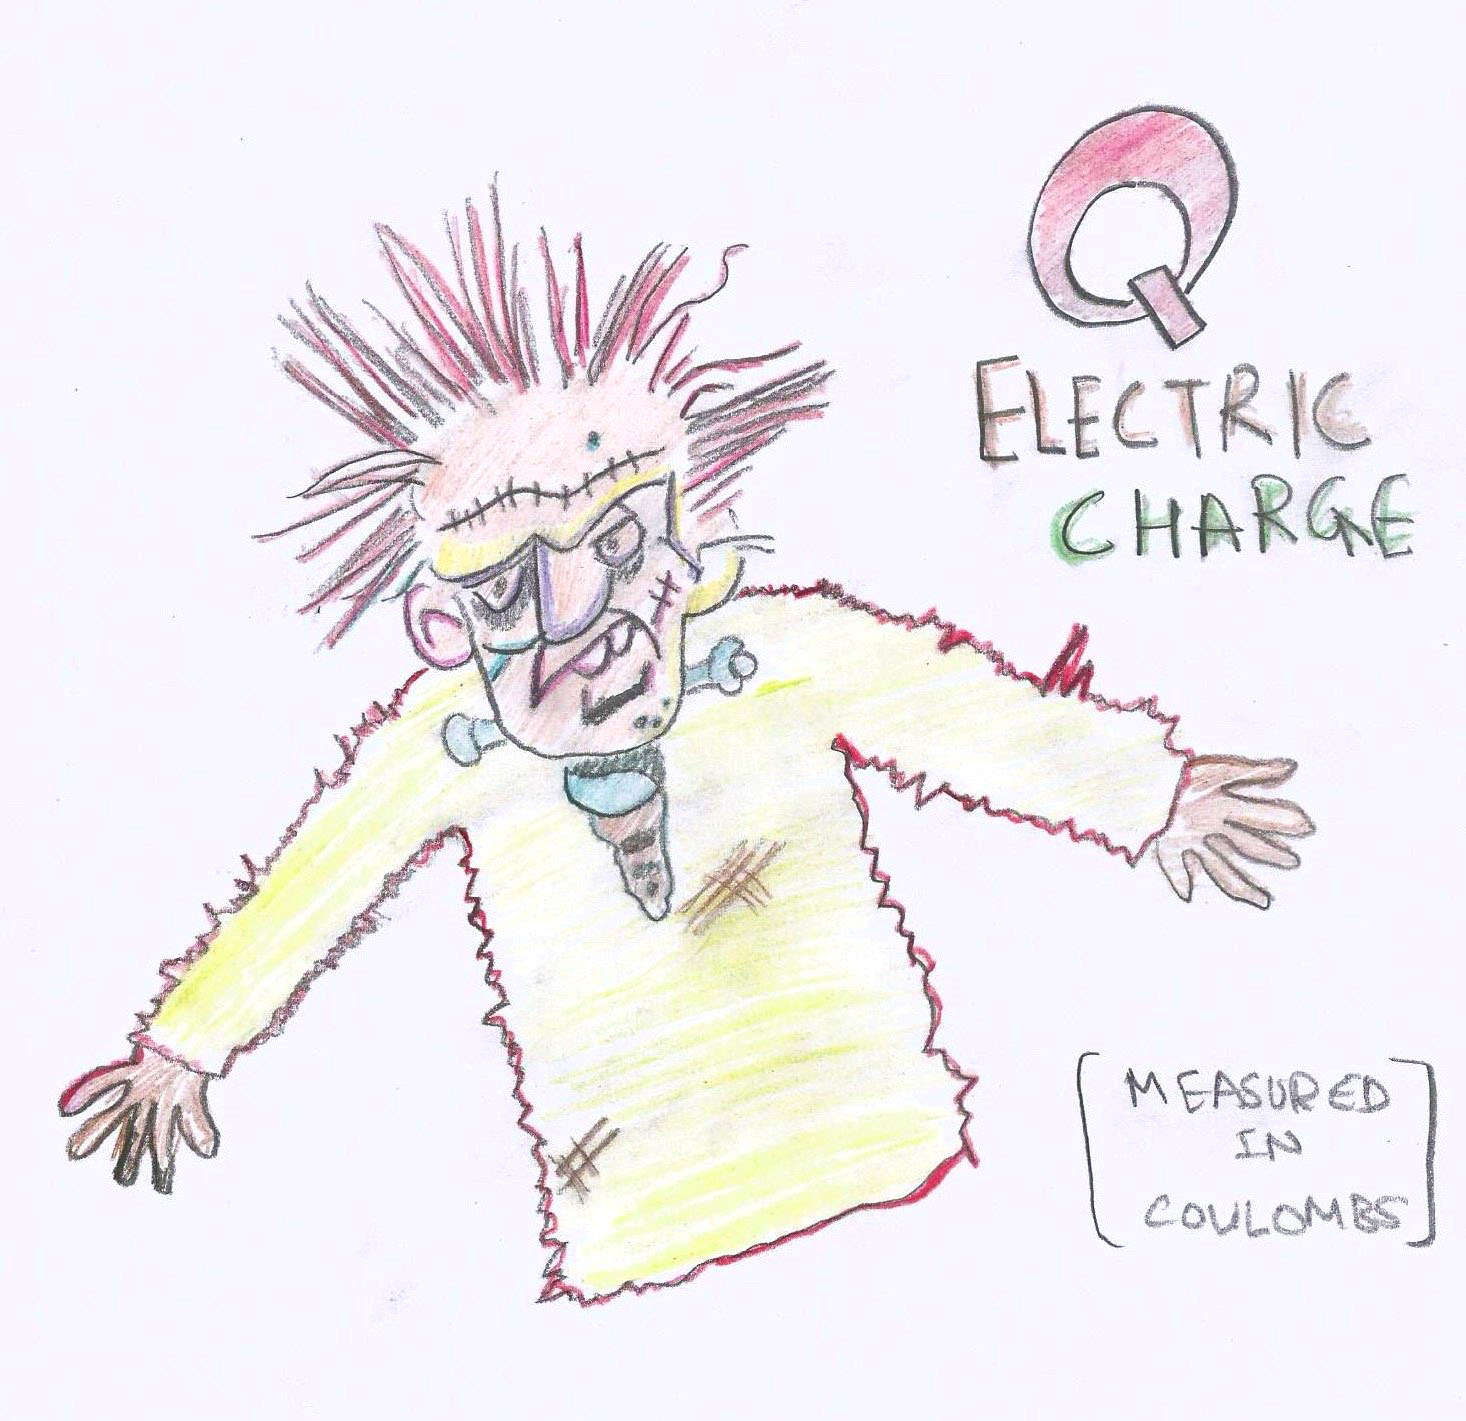 Q
ELECTRIC
CHARGE
[MEASURED
IN
COULOMBS]